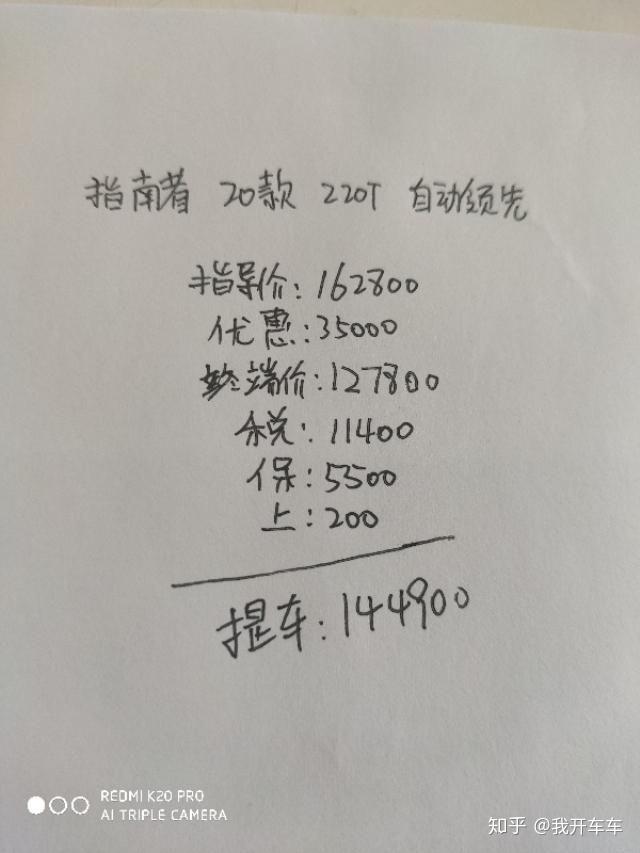 指南者 20款 220T 自动领先
指导价:162800
优惠:35000
终端价:127800
税:11400
保:5500
上:200
提车:144900
REDMI K20 PRO
AI TRIPLE CAMERA
知乎 @我开车车